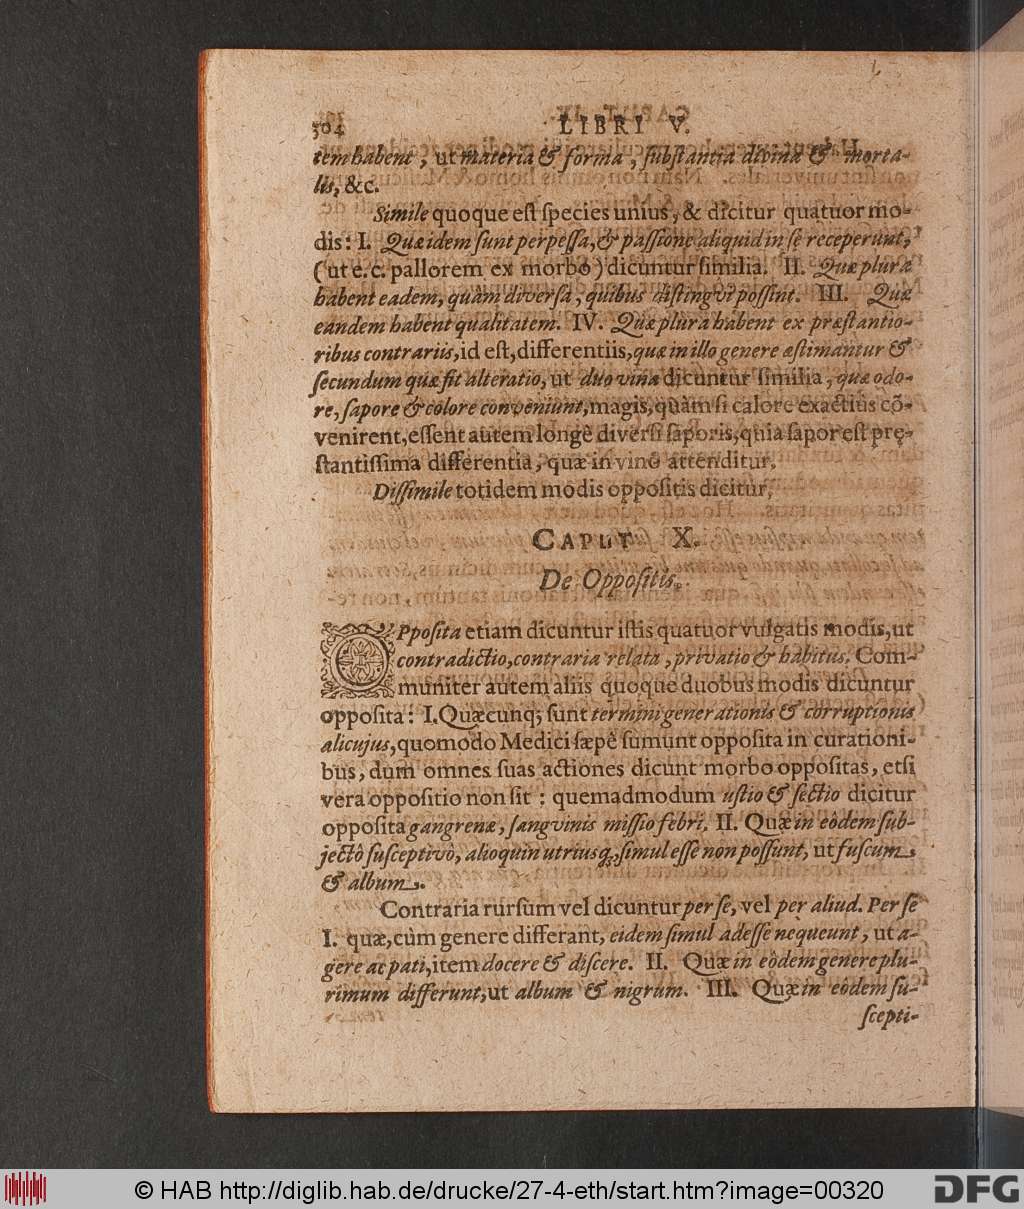 304 LIBRI V.
tem habent, ut materia & forma, ſubſtantia divina & morta-
lis, &c.
Simile quoque eſt ſpecies unius, & dicitur quatuor mo-
dis: I. Quæ idem ſunt perpeſſa, & paſſione aliquid in ſe receperunt,
(ut e. c. pallorem ex morbo) dicuntur ſimilia. II. Quæ plura
habent eadem, quàm diverſa, quibus diſtingvi poſſint. III. Quæ
eandem habent qualitatem. IV. Quæ plura habent ex præſtantio-
ribus contrariis, id eſt, differentiis, quæ in illo genere æſtimantur &
ſecundum quæ fit alteratio, ut duo vina dicuntur ſimilia, quæ odo-
re, ſapore & colore conveniunt, magis, quàm ſi calore exactius cõ-
venirent, eſſent autem longè diverſi ſaporis, quia ſapor eſt prę-
ſtantiſſima differentia, quæ in vinô attenditur.
Diſſimile totidem modis oppoſitis dicitur.
CAPUT X.
De Oppoſitis.
OPpoſita etiam dicuntur iſtis quatuor vulgatis modis, ut
contradictio, contraria relata, privatio & habitus. Com-
muniter autem aliis quoque duobus modis dicuntur
oppoſita: I. Quæcunq; ſunt termini generationis & corruptionis
alicujus, quomodo Medici ſæpè ſumunt oppoſita in curationi-
bus, dum omnes ſuas actiones dicunt morbo oppoſitas, etſi
vera oppoſitio non ſit: quemadmodum uſtio & ſectio dicitur
oppoſita gangrenæ, ſangvinis miſſio febri. II. Quæ in eôdem ſub-
jectô ſuſceptivô, alioquin utriusq;, ſimul eſſe non poſſunt, ut fuſcum
& album.
Contraria rurſum vel dicuntur per ſe, vel per aliud. Per ſe
I. quæ, cùm genere differant, eidem ſimul adeſſe nequeunt, ut a-
gere ac pati, item docere & diſcere. II. Quæ in eôdem genere plu-
rimum differunt, ut album & nigrum. III. Quæ in eôdem ſu-
ſcepti-
© HAB http://diglib.hab.de/drucke/27-4-eth/start.htm?image=00320
DFG